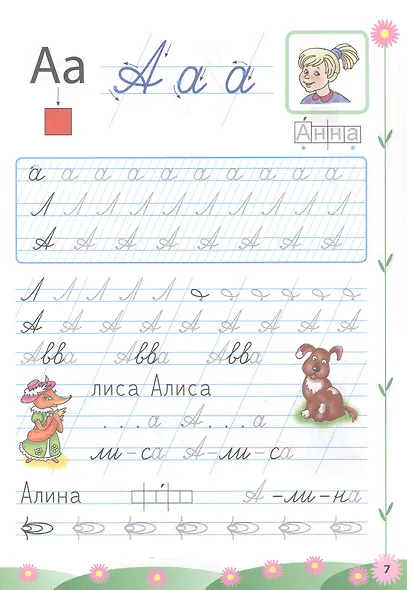 Аа А а а
А́нна
а а а а а а а а а а
Л Л Л Л Л Л Л Л Л Л
А А А А А А А А
Л Л Л Л Л
А А А А А А А А
Авва Авва Авва
лиса Алиса
. . . а А . . . а
ли-са А-ли-са
Алина А-ли-на
7